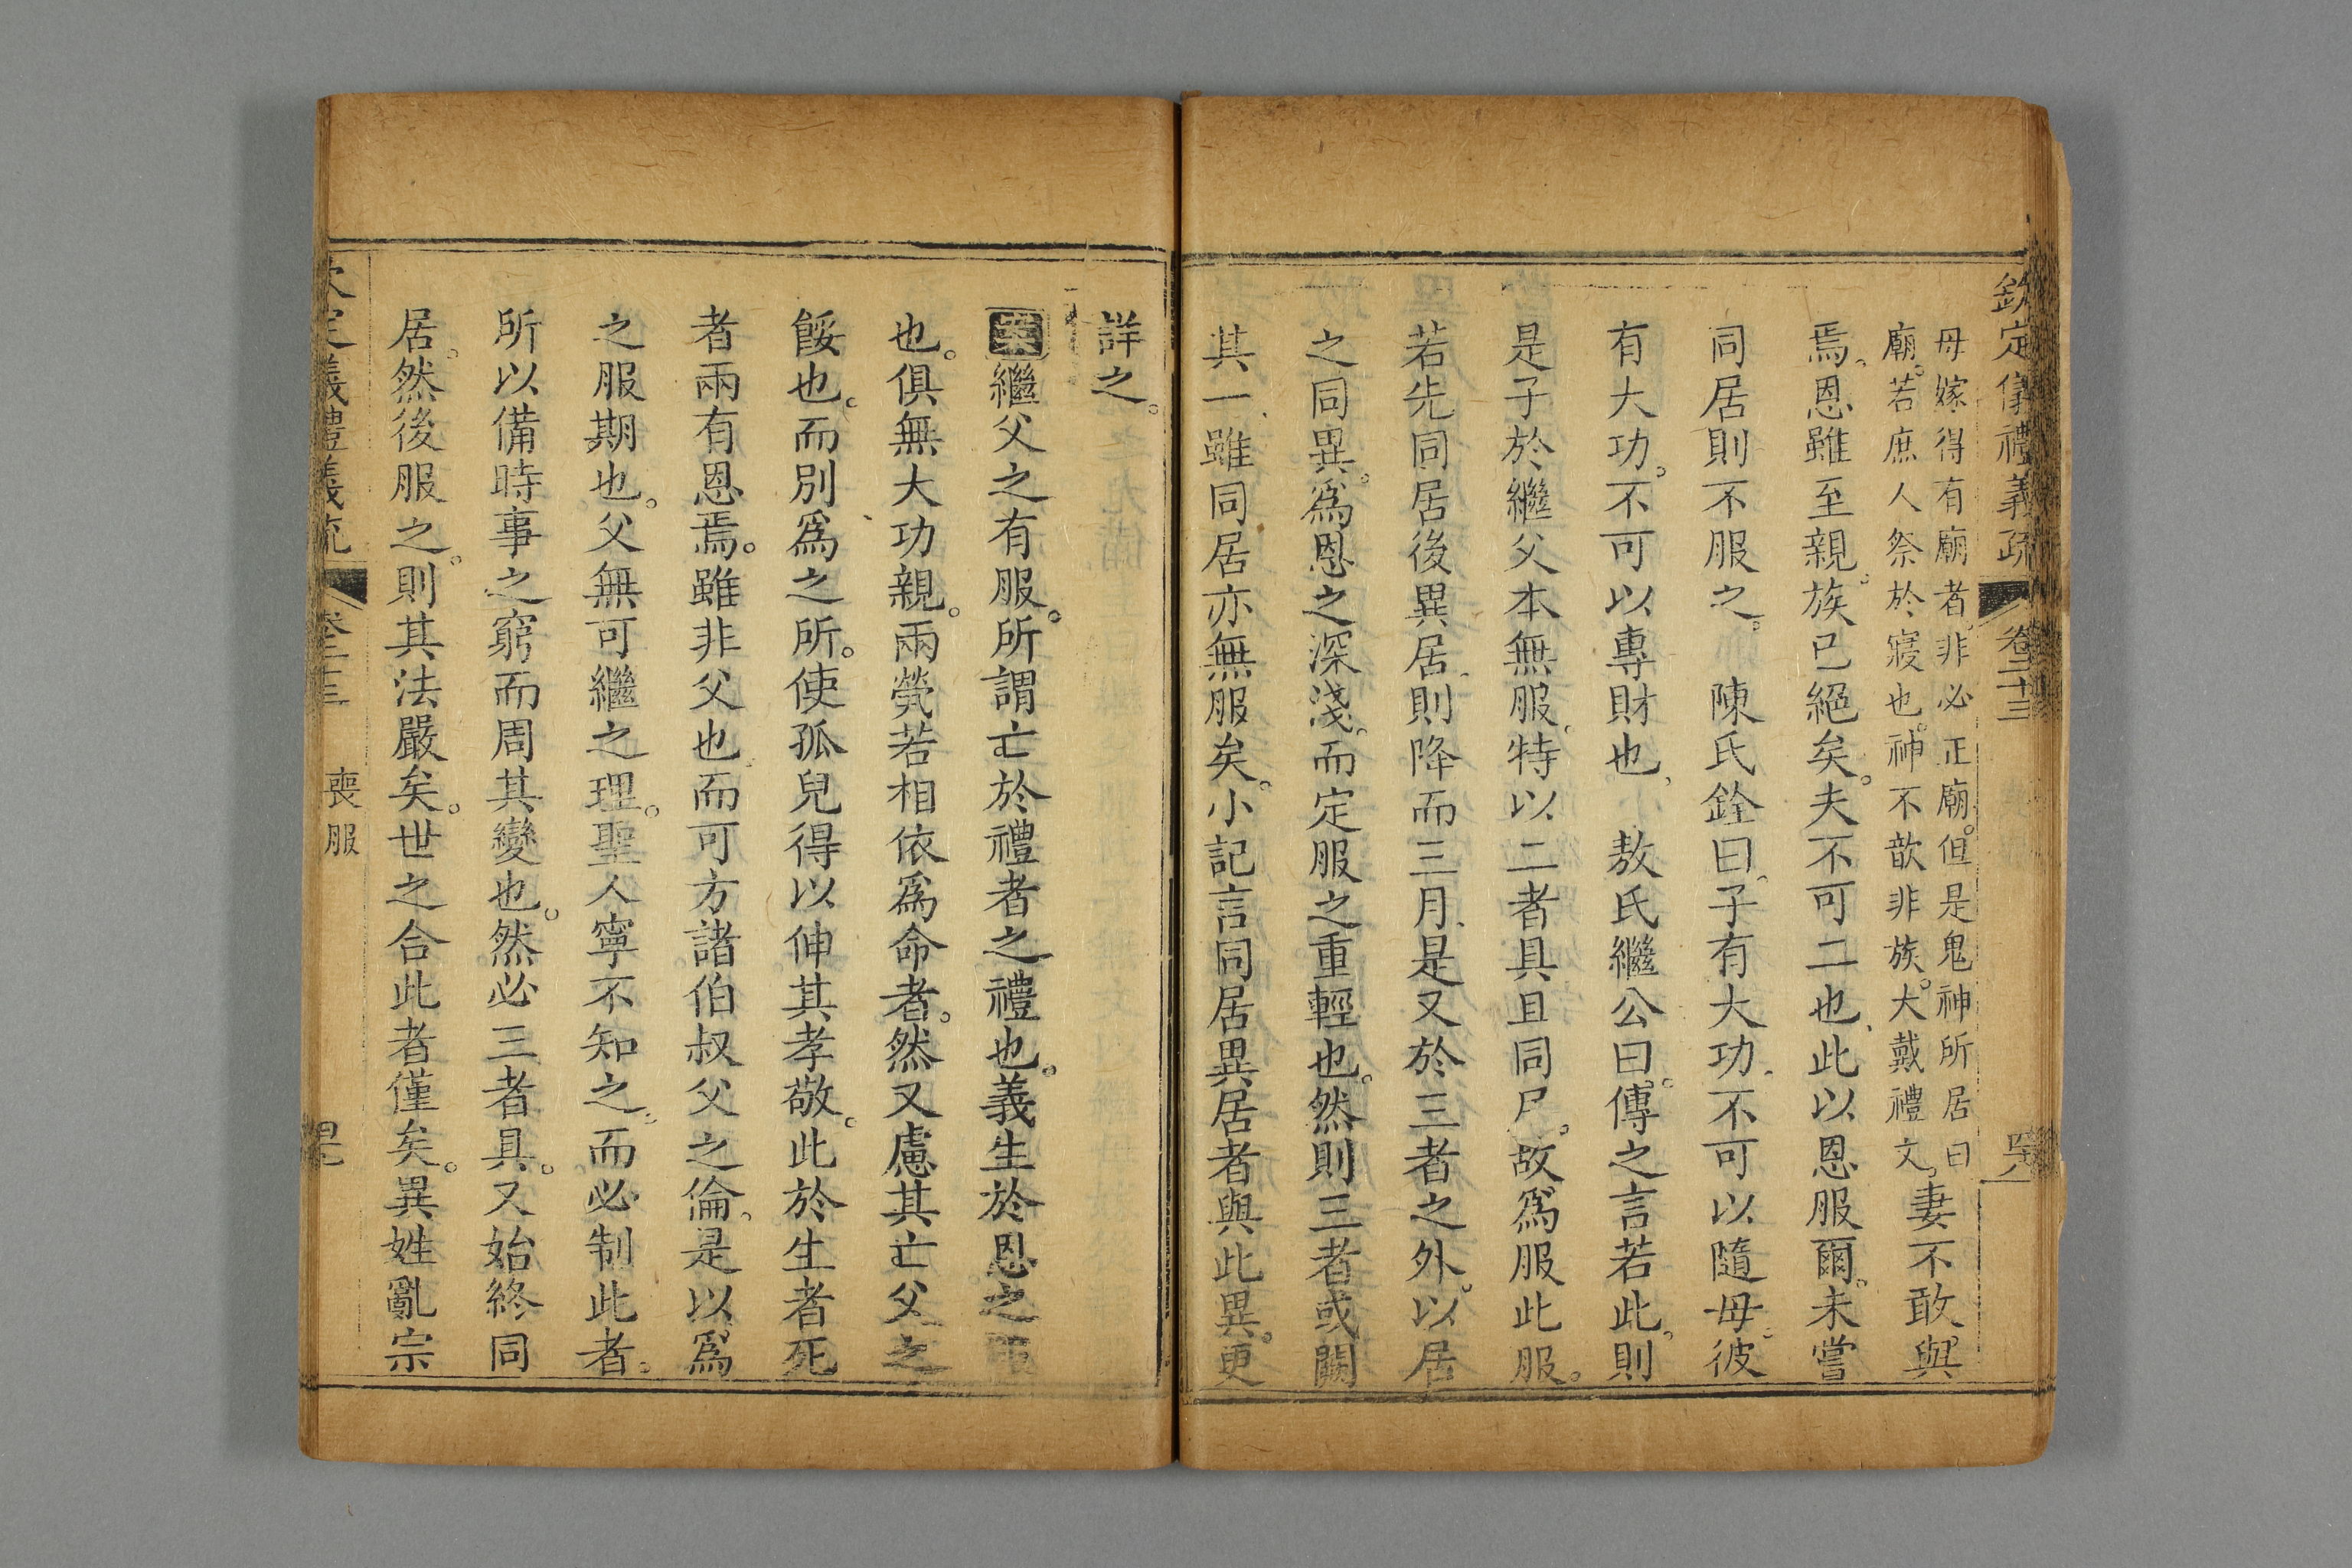 欽定儀禮義疏 卷二十三
母嫁得有廟者非必正廟。但是鬼神所居曰
廟。若庶人祭於寢也。神不歆非族。大戴禮文。
妻不敢與
焉。恩雖至親。族已絕矣。夫不可二也、此以恩服爾。未嘗
同居則不服之。 陳氏銓曰、子有大功、不可以隨母、彼
有大功。不可以專財也、 敖氏繼公曰。傳之言若此、則
是子於繼父本無服、特以二者具且同尸。故爲服此服。
若先同居後異居、則降而三月、是又於三者之外。以居
之同異。爲恩之深淺。而定服之重輕也。然則三者或闕
其一、雖同居亦無服矣。小記言同居異居者與此異。更
詳之。
案繼父之有服。所謂亡於禮者之禮也。義生於恩之
也。俱無大功親。兩煢若相依爲命者。然又慮其亡父之
餒也。而別爲之所。使孤兒得以伸其孝敬。此於生者死
者兩有恩焉。雖非父也、而可方諸伯叔父之倫。是以爲
之服期也。父無可繼之理。聖人寧不知之。而必制此者。
所以備時事之窮而周其變也。然必三者具。又始終同
居。然後服之。則其法嚴矣。世之合此者僅矣。異姓亂宗
喪服